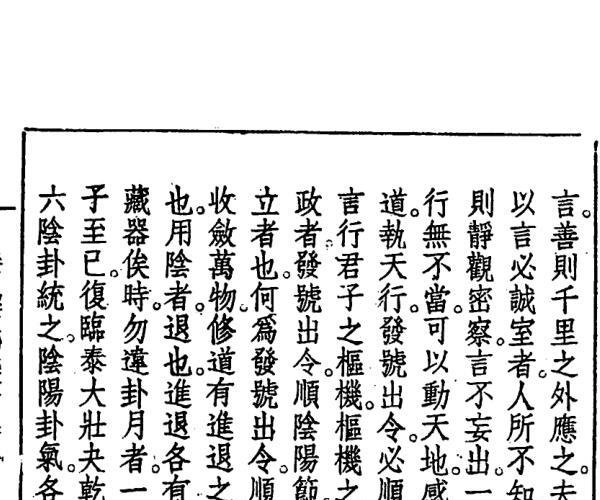 言。善則千里之外應之。夫
以言必誠室者。人所不知
則靜觀密察。言不妄出。一
行無不當。可以動天地。感
道。執天行。發號出令。必順
言行君子之樞機。樞機之
政者。發號出令。順陰陽節
立者也。何為發號出令。順
收斂萬物。修道有進退之
也。用陰者。退也。進退各有
藏器俟時。勿違卦月者。一
子至巳。復臨泰大壯夬乾
六陰卦統之。陰陽卦氣。各